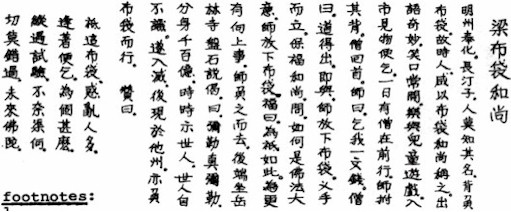 梁布袋和尚
明州奉化。長汀子。人莫知其名。背負
布袋。故時人。咸以布袋和尚姆之。出
語奇妙。笑口常開。與兒童遊戲。入
市見物便乞。一日有僧在前行。師拊
其背。僧回首。師曰。乞我一文錢。僧
曰。道得出。即與。師放下布袋。叉手
而立。保福和尚問。如何是佛法大
意。師放下布袋。福曰。為祇如此。為更
有向上事。師負之而去。後端坐岳
林寺盤石。說偈曰。彌勒真彌勒。
分身千百億。時時示世人。世人自
不識。遂入滅。後現於他州。亦負
布袋而行。 贊曰。
祇這布袋。惑亂人多。
逢著便乞。為個甚麼。
縱過試驗。不奈渠何。
切莫錯過。未來佛陀。
footnotes: